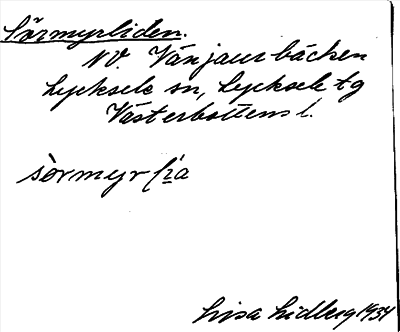 Sörmyrliden.
NV. Vänjaurbäcken
Lycksele sn, Lycksele tg
Västerbottens l.
sörmyrlia
Lisa Lidberg 1934